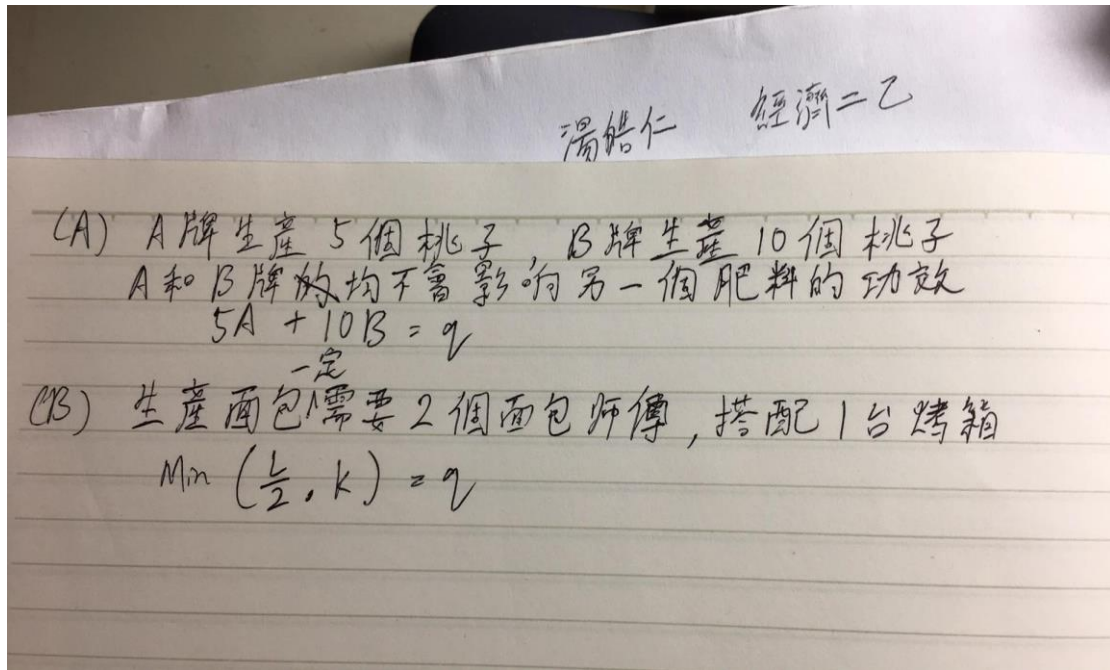 湯皓仁 經濟二乙
(A) A牌生產 5個桃子, B牌生產 10個桃子
A和B牌的均不會影响另一個肥料的功效
5A + 10B = q
(B) 生產面包一定需要2個面包师傅,搭配1台烤箱
Min (L/2, K) = q